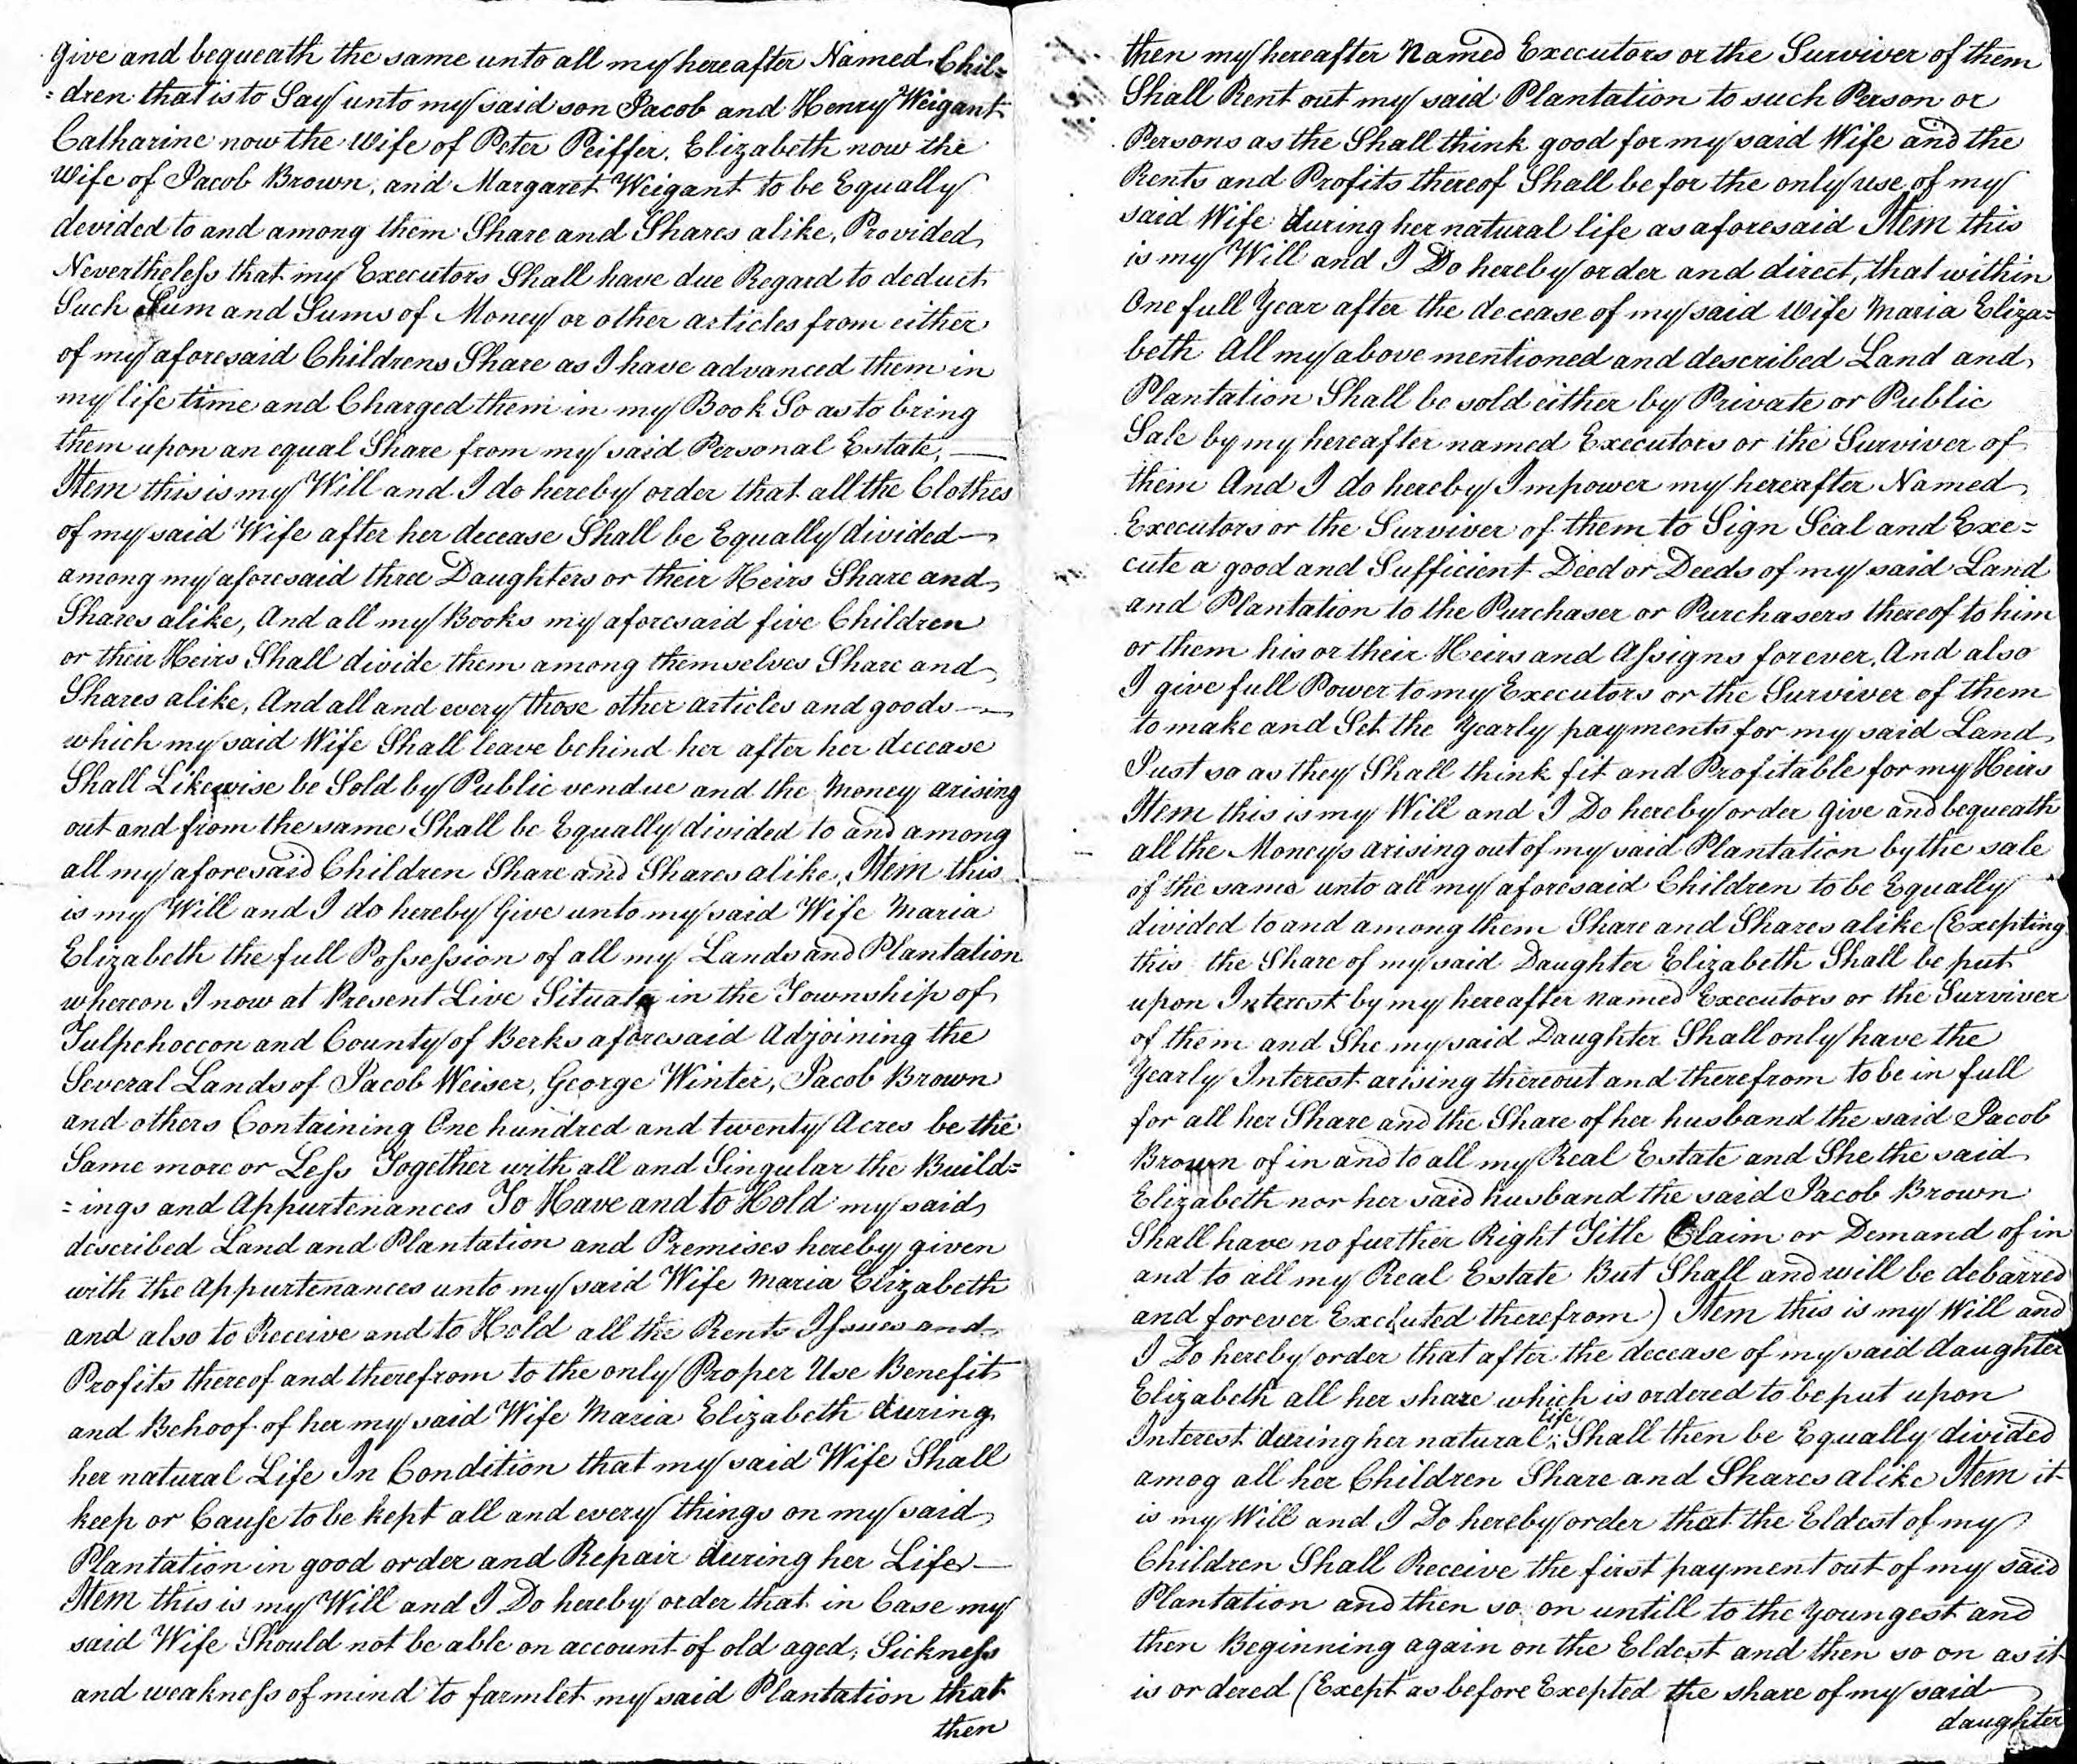 give and bequeath the same unto all my hereafter Named Chil=
=dren that is to Say unto my said son Jacob and Henry Weigant
Catharine now the Wife of Peter Peiffer, Elizabeth now the
Wife of Jacob Brown, and Margaret Weigant to be Equally
devided to and among them Share and Shares alike, Provided
Nevertheless that my Executors Shall have due Regard to deduct
Such Sum and Sums of Money or other articles from either
of my aforesaid Childrens Share as I have advanced them in
my life time and Charged them in my Book So as to bring
them upon an equal Share from my said Personal Estate, —
Item this is my Will and I do hereby order that all the Clothes
of my said Wife after her decease Shall be Equally divided —
among my aforesaid three Daughters or their Heirs Share and
Shares alike, And all my Books my aforesaid five Children
or their Heirs Shall divide them among themselves Share and
Shares alike, And all and every those other articles and goods —
which my said Wife Shall leave behind her after her decease
Shall Likewise be Sold by Public vendue and the Money arising
out and from the same Shall be Equally divided to and among
all my aforesaid Children Share and Shares alike, Item this
is my Will and I do hereby Give unto my said Wife Maria
Elizabeth the full Possession of all my Lands and Plantation
whereon I now at Present Live Situate in the Township of
Tulpehoccon and County of Berks aforesaid Adjoining the
Several Lands of Jacob Weiser, George Winter, Jacob Brown
and others Containing One hundred and twenty Acres be the
Same more or Less Together with all and Singular the Build=
=ings and Appurtenances To Have and to Hold my said
described Land and Plantation and Premises hereby given
with the Appurtenances unto my said Wife Maria Elizabeth
and also to Receive and to Hold all the Rents Issues and
Profits thereof and therefrom to the only Proper Use Benefit
and Behoof of her my said Wife Maria Elizabeth during
her natural Life In Condition that my said Wife Shall
keep or Cause to be kept all and every things on my said
Plantation in good order and Repair during her Life —
Item this is my Will and I Do hereby order that in Case my
said Wife Should not be able on account of old aged, Sickness
and weakness of mind to farmlet my said Plantation that
then
then my hereafter Named Executors or the Surviver of them
Shall Rent out my said Plantation to such Person or
Persons as the Shall think good for my said Wife and the
Rents and Profits thereof Shall be for the only use of my
said Wife during her natural life as aforesaid Item this
is my Will and I Do hereby order and direct, that within
One full Year after the decease of my said Wife Maria Eliza=
beth All my above mentioned and described Land and
Plantation Shall be sold either by Private or Public
Sale by my hereafter named Executors or the Surviver of
them And I do hereby Impower my hereafter Named
Executors or the Surviver of them to Sign Seal and Exe=
cute a good and Sufficient Deed or Deeds of my said Land
and Plantation to the Purchaser or Purchasers thereof to him
or them his or their Heirs and Assigns forever, And also
I give full Power to my Executors or the Surviver of them
to make and Set the Yearly payments for my said Land
Just so as they Shall think fit and Profitable for my Heirs
Item this is my Will and I Do hereby order give and bequeath
all the Moneys arising out of my said Plantation by the sale
of the same unto all my aforesaid Children to be Equally
divided to and among them Share and Shares alike (Exepting
this the Share of my said Daughter Elizabeth Shall be put
upon Interest by my hereafter named Executors or the Surviver
of them and She my said Daughter Shall only have the
Yearly Interest arising thereout and therefrom to be in full
for all her Share and the Share of her husband the said Jacob
Brown of in and to all my Real Estate and She the said
Elizabeth nor her said husband the said Jacob Brown
Shall have no further Right Title Claim or Demand of in
and to all my Real Estate But Shall and will be debarred
and forever Excluted therefrom) Item this is my Will and
I Do hereby order that after the decease of my said daughter
Elizabeth all her share which is ordered to be put upon
Interest during her natural life Shall then be Equally divided
amog all her Children Share and Shares alike Item it
is my Will and I Do hereby order that the Eldest of my
Children Shall Receive the first payment out of my said
Plantation and then so on untill to the Youngest and
then Beginning again on the Eldest and then so on as it
is ordered (Exept as before Exepted the share of my said
daughter